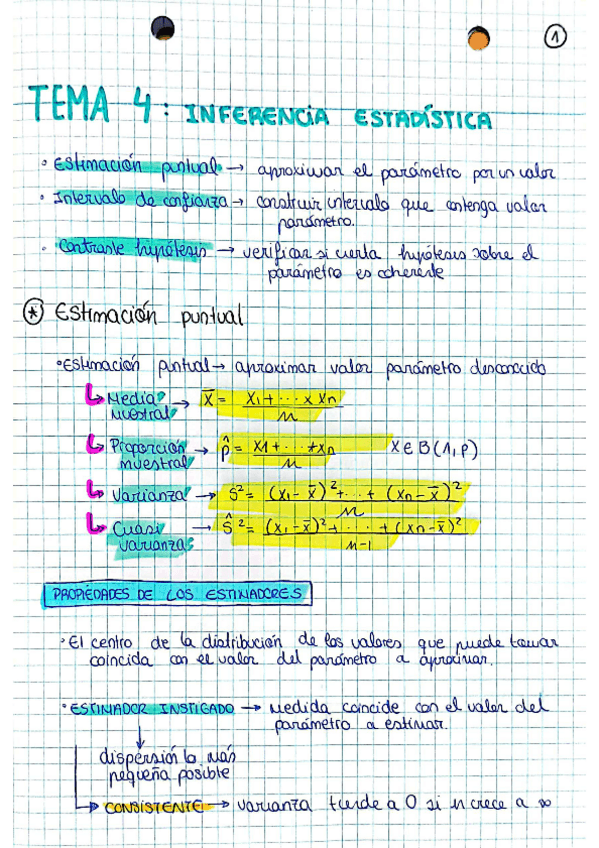 1
TEMA 4: INFERENCIA ESTADÍSTICA
• Estimación puntual → aproximar el parámetro por un valor
• Intervalo de confianza → construir intervalo que contenga valor
parámetro.
• Contraste hipótesis → verificar si cierta hipótesis sobre el
parámetro es coherente
* Estimación puntual
• Estimación puntual → aproximar valor parámetro desconocido
Media muestral → x̄ = x1 + ... x xn / n
Proporción muestral → p̂ = x1 + ... + xn / n    X ∈ B(1,p)
Varianza → S² = (x1 - x̄)² + ... + (xn - x̄)² / n
Cuasi varianza → Ŝ² = (x1 - x̄)² + ... + (xn - x̄)² / n-1
PROPIEDADES DE LOS ESTIMADORES
• El centro de la distribución de los valores que puede tomar
coincida con el valor del parámetro a aproximar.
• ESTIMADOR INSTIGADO → medida coincide con el valor del
parámetro a estimar.
↓
dispersión lo más
pequeña posible
→ CONSISTENTE → varianza tiende a 0 si n crece a ∞